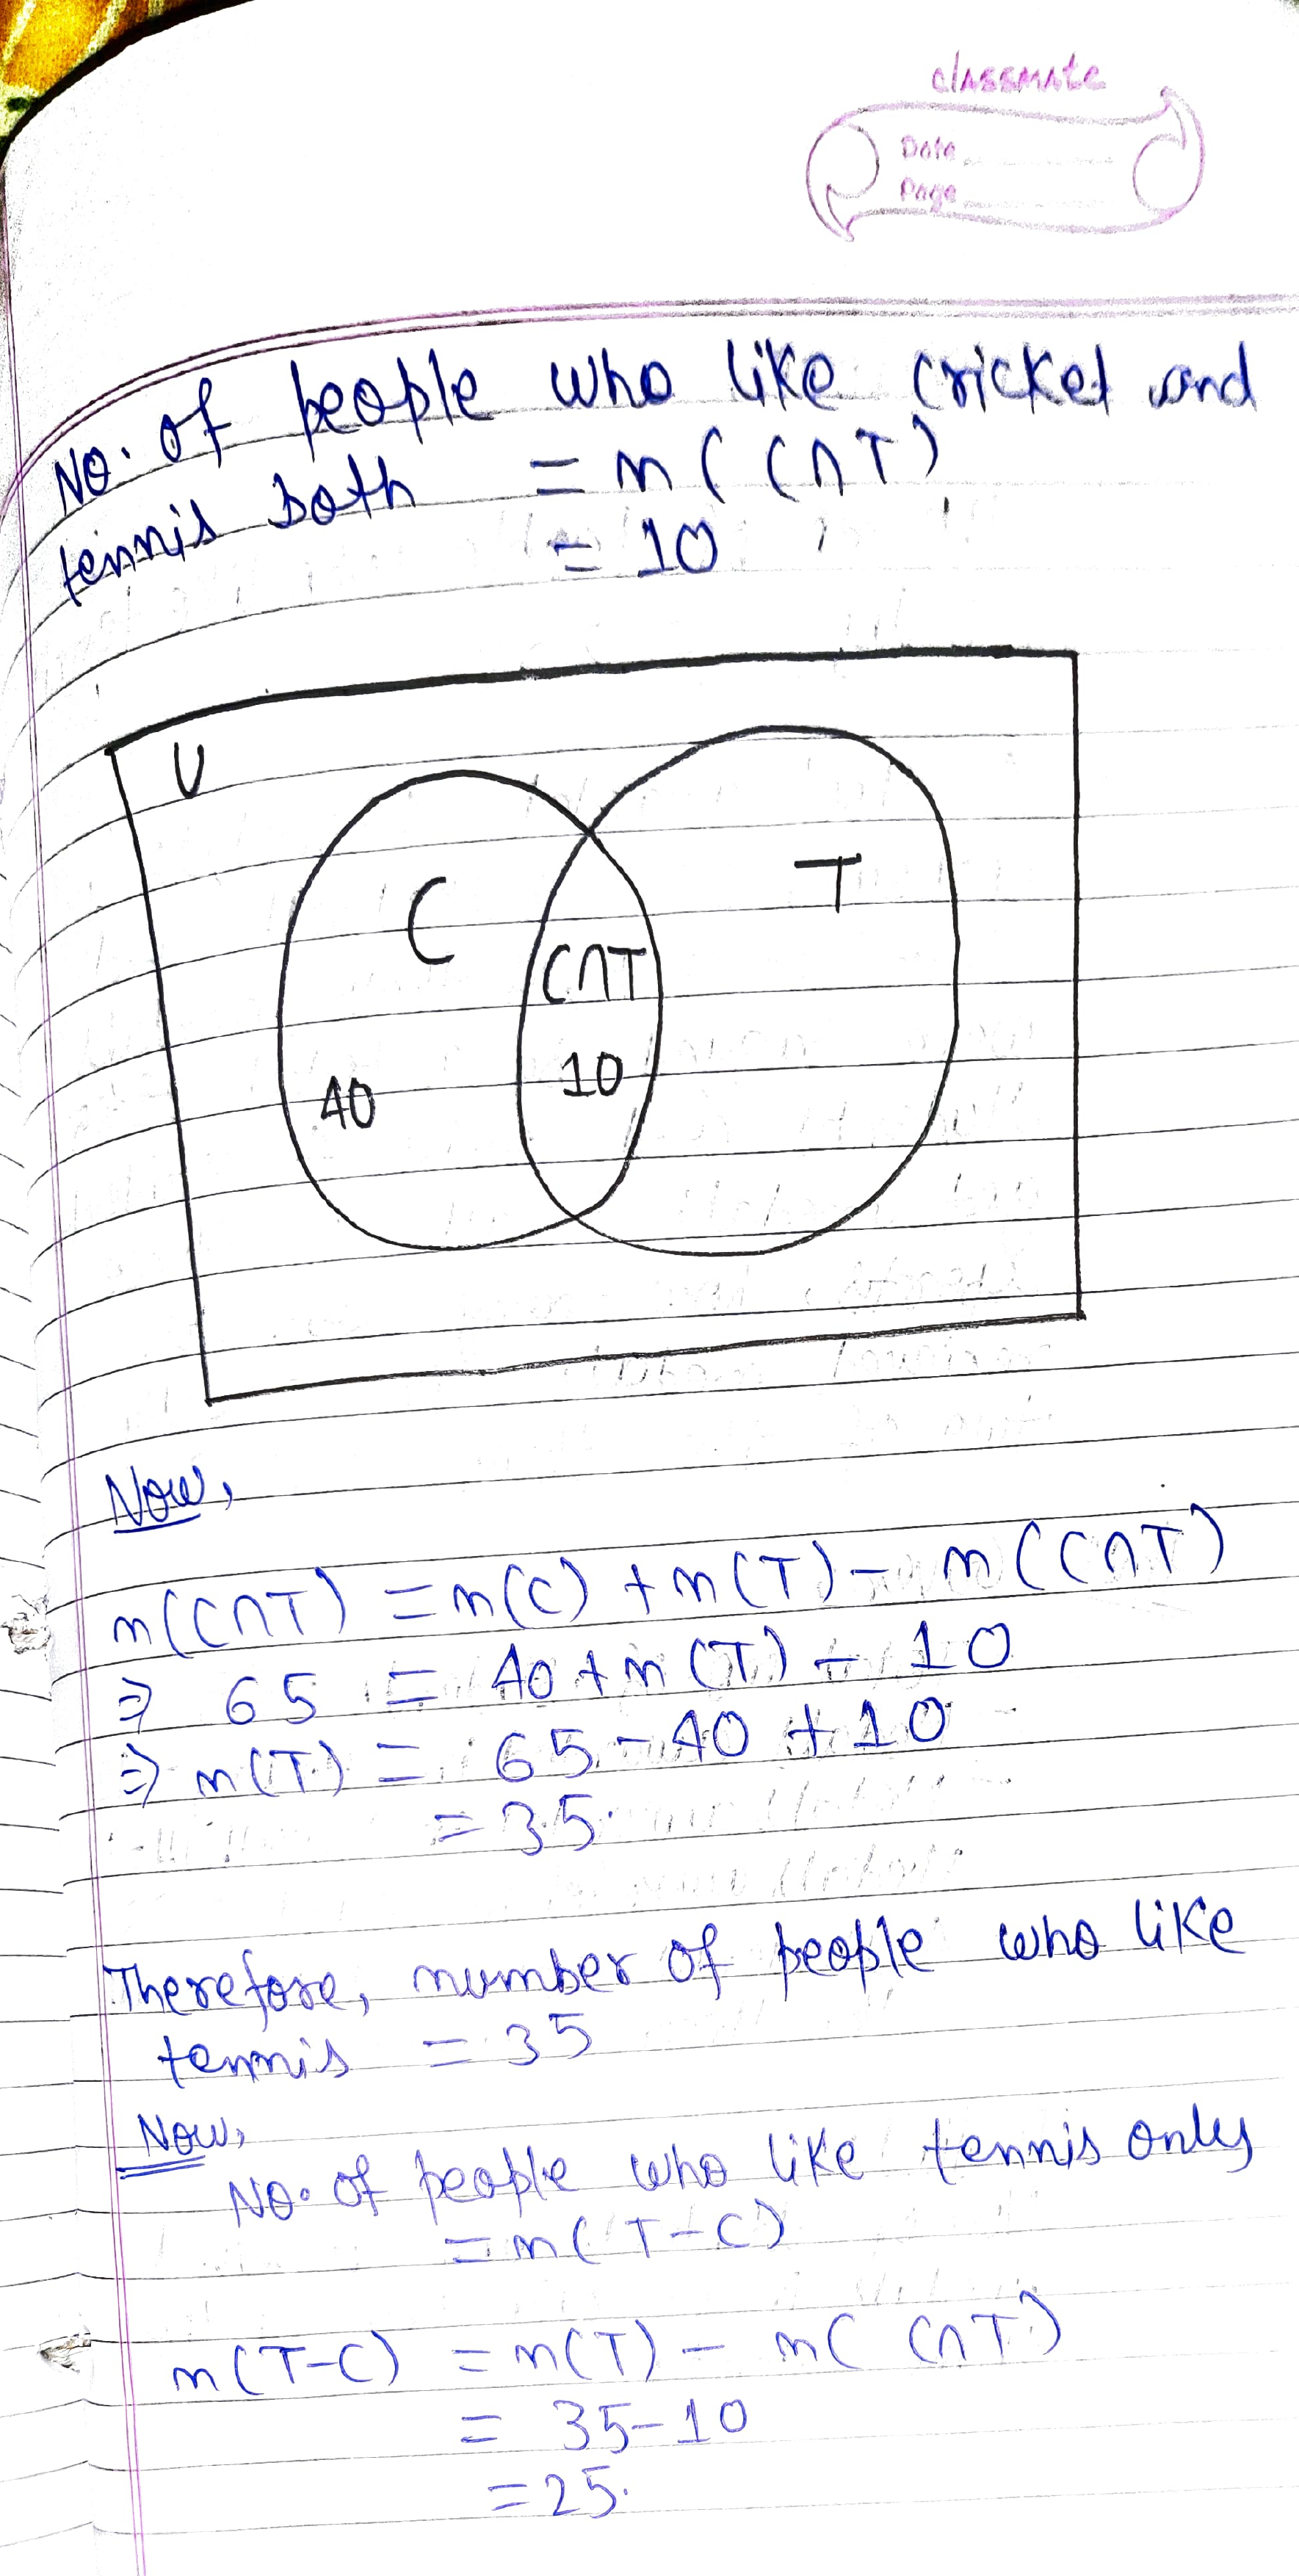 classmate
Date
Page
No. of people who like cricket and
tennis both = n( C∩T)
= 10
U
C
T
C∩T
40
10
Now,
n(C∩T) = n(C) + n(T) - n(C∩T)
⇒ 65 = 40 + n(T) - 10
⇒ n(T) = 65 - 40 + 10
= 35.
Therefore, number of people who like
tennis = 35
Now,
No. of people who like tennis only
= n( T-C)
n(T-C) = n(T) - n( C∩T)
= 35-10
= 25.